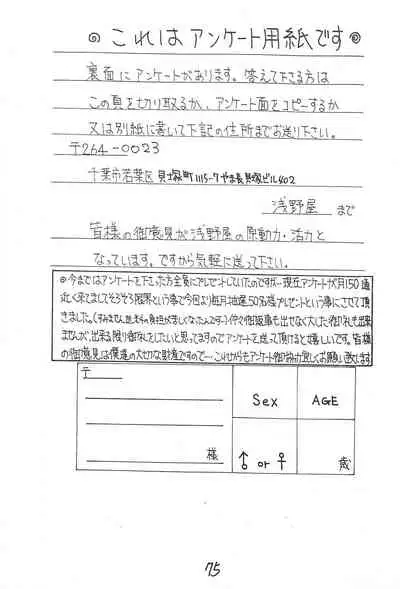 ◎これはアンケート用紙です◎
裏面にアンケートがあります。答えて下さる方は
この頁を切り取るか、アンケート面をコピーするか
又は別紙に書いて下記の住所までお送り下さい。
〒264-0023
千葉市若葉区貝塚町1115-7やま長貝塚ビル402
浅野屋 まで
皆様の御意見が浅野屋の原動力・活力と
なっています。ですから気軽に送って下さい。
◎今まではアンケートを下さった方全員にプレゼントしていたのですが…現在アンケートが月150通
近く来てましてそろそろ限界という事で今回より毎月抽選50名様プレゼントという事にさせて頂
きました。(すみません、
ませんが、出来る限り御礼をしたいと思ってますのでアンケートを送って頂けると嬉しいです。皆様
の御意見は僕達の大切な財産ですので…これからもアンケート御協力宜しくお願い致します
〒
Sex
AGE
様
♂ or ♀
歳
75